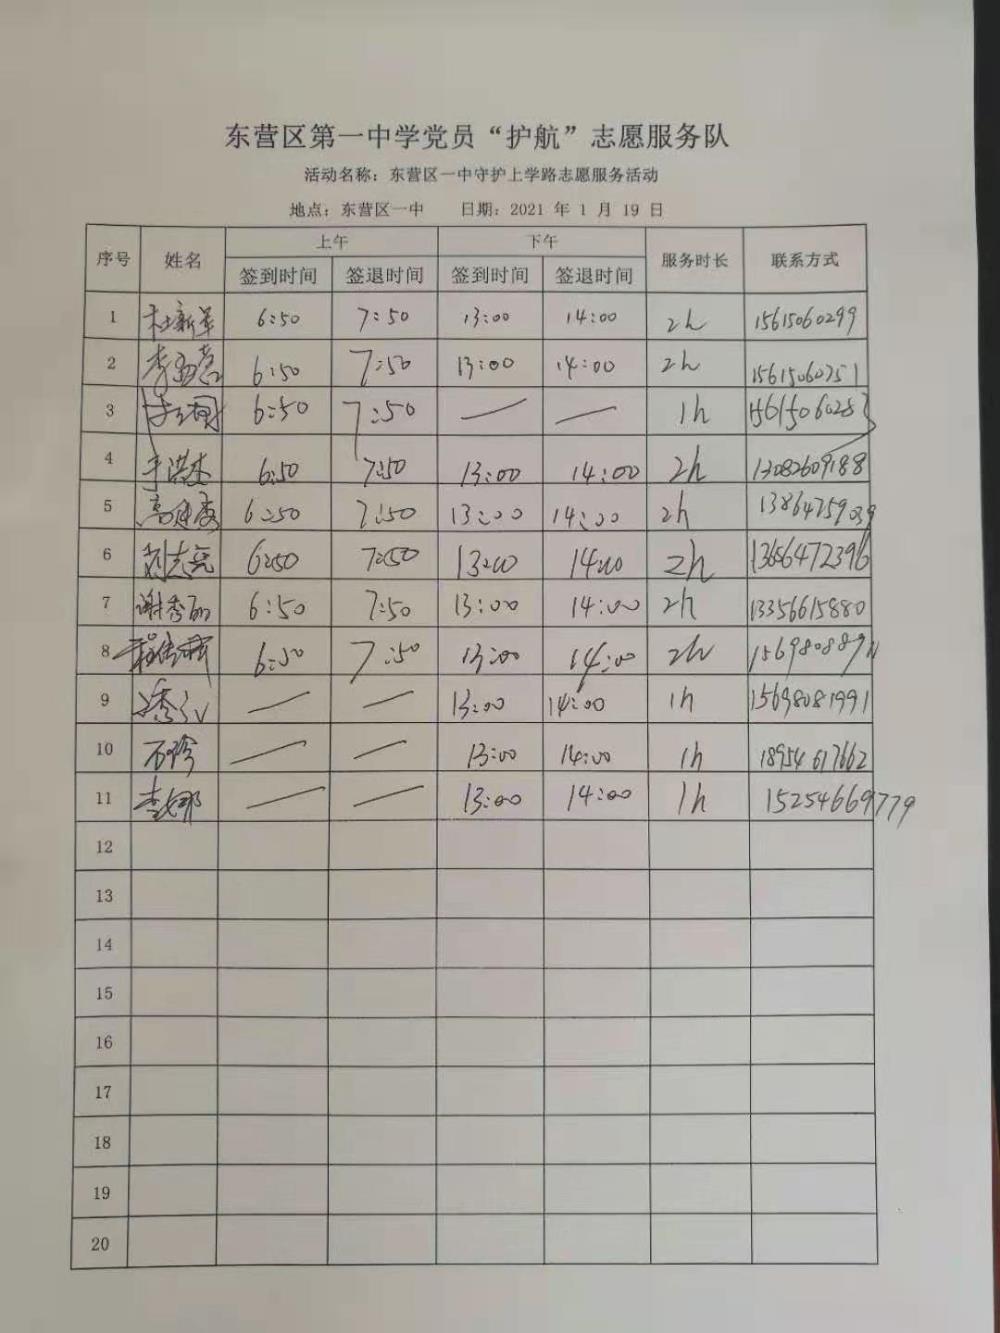 东营区第一中学党员“护航”志愿服务队
活动名称：东营区一中守护上学路志愿服务活动
地点：东营区一中 日期：2021 年 1 月 19 日
序号 姓名 上午 下午 服务时长 联系方式
签到时间 签退时间 签到时间 签退时间
1 杜新军 6:50 7:50 13:00 14:00 2h 15615060299
2 6:50 7:50 13:00 14:00 2h 15615060251
3 6:50 7:50 — — 1h 15615060283
4 于洪杰 6:50 7:50 13:00 14:00 2h 13082609188
5 6:50 7:50 13:00 14:00 2h 13864759039
6 刘志亮 6:50 7:50 13:00 14:00 2h 13656472396
7 谢秀丽 6:50 7:50 13:00 14:00 2h 13356615880
8 6:50 7:50 13:00 14:00 2h
9 — — 13:00 14:00 1h 15698081991
10 石珍 — — 13:00 14:00 1h 18954617662
11 李娜 — — 13:00 14:00 1h 15254669779
12
13
14
15
16
17
18
19
20